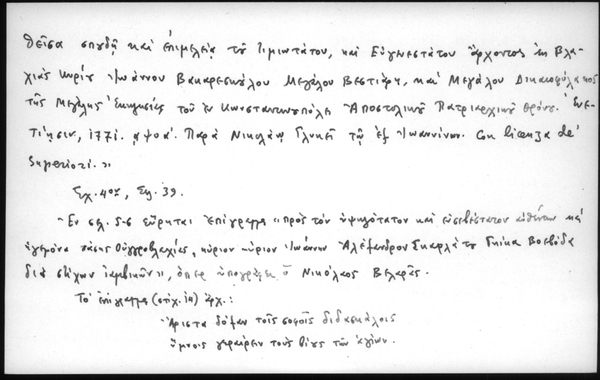 θεῖσα σπουδῇ καὶ ἐπιμελείᾳ τοῦ Τιμιωτάτου, καὶ Εὐγενεστάτου ἄρχοντος ἐκ Βλα-
χίας κυρίου Ἰωάννου Βακαρεσκούλου Μεγάλου Βεστιάρη, καὶ Μεγάλου Δικαιοφύλακος
τῆς Μεγάλης Ἐκκλησίας τοῦ ἐν Κωνσταντινουπόλει Ἀποστολικοῦ Πατριαρχικοῦ θρόνου. Ἐνε-
τίησιν, 1771. αψοα΄. Παρὰ Νικολάῳ Γλυκεῖ τῷ ἐξ Ἰωαννίνων. Con licenza de'
Superiori.»
Σχ. 4ον, Σελ. 39.
Ἐν σελ. 5-6 εὕρηται Ἐπίγραμμα «πρὸς τὸν ὑψηλότατον καὶ εὐσεβέστατον αὐθέντην καὶ
ἡγεμόνα πάσης Οὐγγροβλαχίας, κύριον κύριον Ἰωάννην Ἀλέξανδρον Σκαρλάτου Γκίκα Βοεβόδα
διὰ στίχων ἰαμβικῶν», ὅπερ ὑπογράφει ὁ Νικόλαος Βελαρᾶς.
Τὸ ἐπίγραμμα (στίχ. 14) ἄρχ.:
Ἄριστα δόξαν τοῖς σοφοῖς διδασκάλοις
ὕμνοις γεραίρειν τοὺς βίους τῶν ἁγίων.